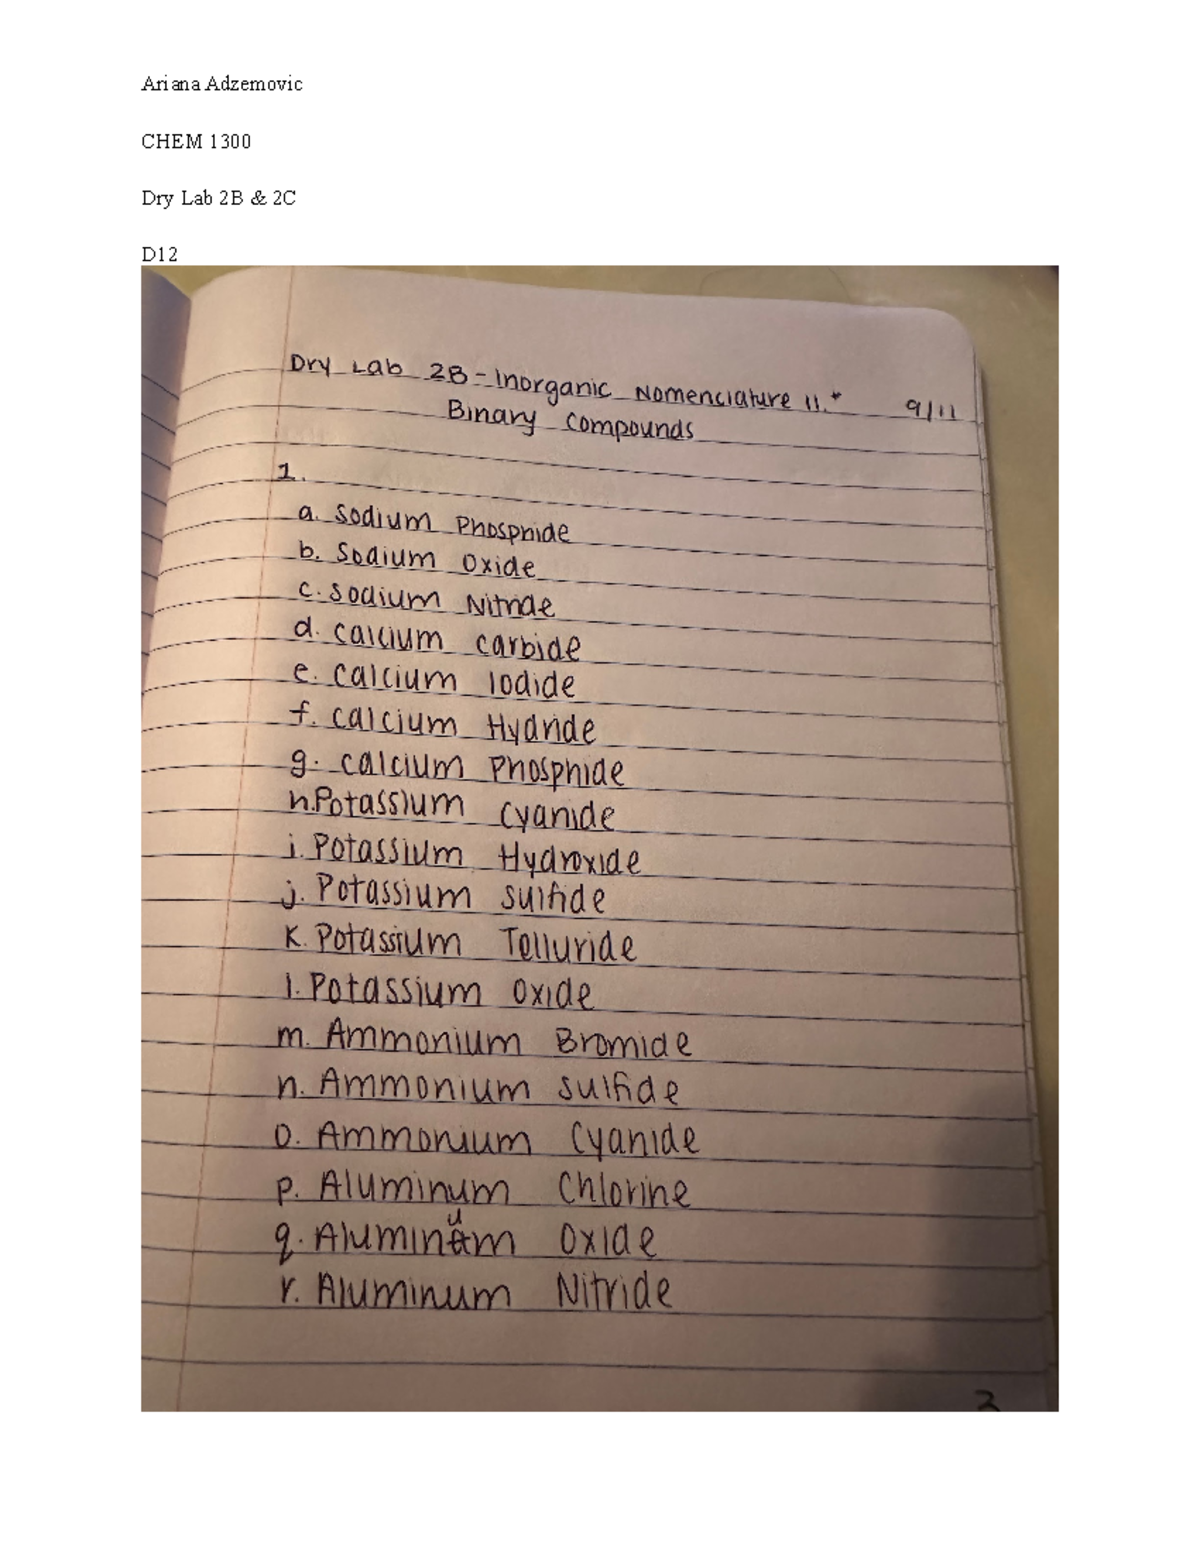 Ariana Adzemovic
CHEM 1300
Dry Lab 2B & 2C
D12
Dry Lab 2B - Inorganic Nomenclature II.* 9/11
Binary Compounds
1.
a. Sodium Phosphide
b. Sodium Oxide
c. Sodium Nitride
d. Calcium Carbide
e. Calcium Iodide
f. Calcium Hydride
g. Calcium Phosphide
h. Potassium Cyanide
i. Potassium Hydroxide
j. Potassium Sulfide
k. Potassium Telluride
l. Potassium Oxide
m. Ammonium Bromide
n. Ammonium Sulfide
o. Ammonium Cyanide
p. Aluminum Chlorine
q. Aluminum Oxide
r. Aluminum Nitride
3